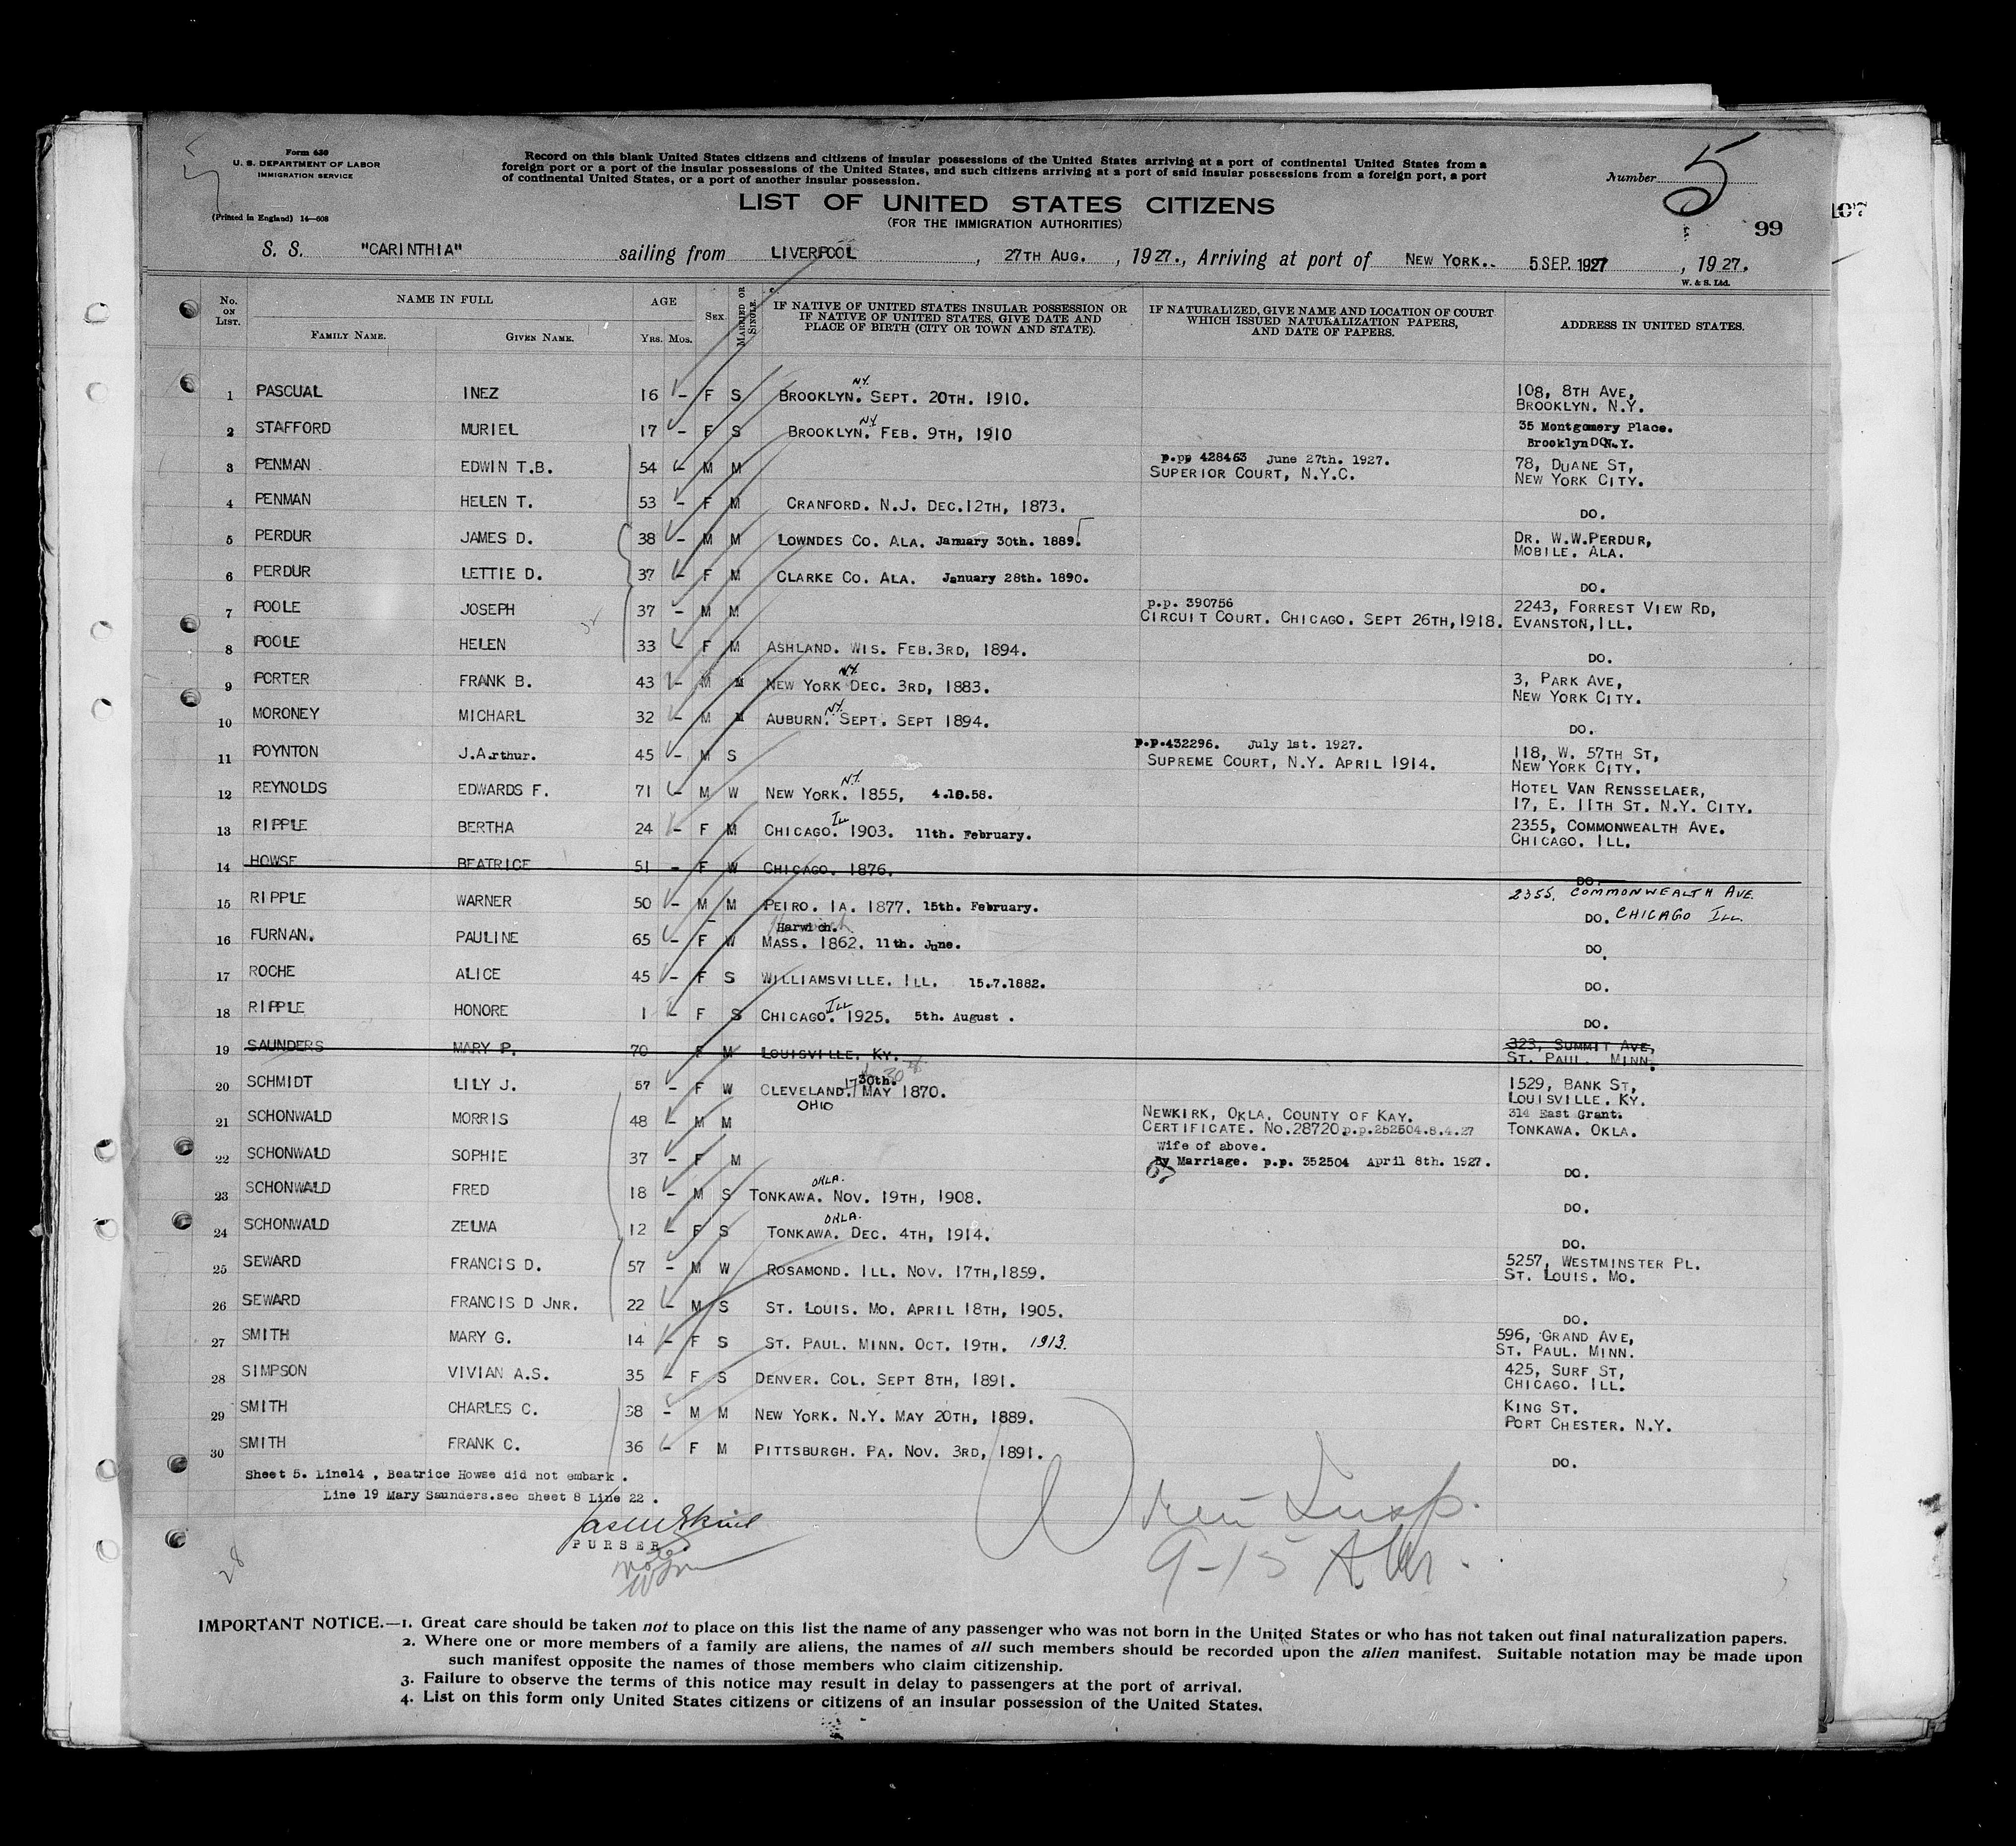 Form 630
U. S. DEPARTMENT OF LABOR
IMMIGRATION SERVICE
(Printed in England) 14—608
Record on this blank United States citizens and citizens of insular possessions of the United States arriving at a port of continental United States from a
foreign port or a port of the insular possessions of the United States, and such citizens arriving at a port of said insular possessions from a foreign port, a port
of continental United States, or a port of another insular possession.
Number 5
LIST OF UNITED STATES CITIZENS
(FOR THE IMMIGRATION AUTHORITIES)
99
107
S. S. "CARINTHIA" sailing from LIVERPOOL, 27TH AUG., 1927., Arriving at port of NEW YORK. 5 SEP. 1927, 1927.
W. & S. Ltd.
No. ON LIST.
NAME IN FULL
FAMILY NAME. GIVEN NAME.
AGE
Yrs. Mos.
SEX
MARRIED OR SINGLE.
IF NATIVE OF UNITED STATES INSULAR POSSESSION OR
IF NATIVE OF UNITED STATES, GIVE DATE AND
PLACE OF BIRTH (CITY OR TOWN AND STATE).
IF NATURALIZED, GIVE NAME AND LOCATION OF COURT
WHICH ISSUED NATURALIZATION PAPERS,
AND DATE OF PAPERS.
ADDRESS IN UNITED STATES.
1 PASCUAL INEZ 16 - F S BROOKLYN. N.Y. SEPT. 20TH. 1910. 108, 8TH AVE,
BROOKLYN. N.Y.
2 STAFFORD MURIEL 17 - F S BROOKLYN. N.Y. FEB. 9TH, 1910 35 Montgomery Place.
Brooklyn DO. N.Y.
3 PENMAN EDWIN T.B. 54 - M M p.pp 428463 June 27th. 1927.
SUPERIOR COURT, N.Y.C. 78, DUANE ST,
NEW YORK CITY.
4 PENMAN HELEN T. 53 - F M CRANFORD. N.J. DEC.12TH, 1873. DO.
5 PERDUR JAMES D. 38 - M M LOWNDES CO. ALA. January 30th. 1889. DR. W.W.PERDUR,
MOBILE. ALA.
6 PERDUR LETTIE D. 37 - F M CLARKE CO. ALA. January 28th. 1890. DO.
7 POOLE JOSEPH 37 - M M p.p. 390756
CIRCUIT COURT. CHICAGO. SEPT 26TH,1918. 2243, FORREST VIEW RD,
EVANSTON, ILL.
8 POOLE HELEN 33 - F M ASHLAND. WIS. FEB.3RD, 1894. DO.
9 PORTER FRANK B. 43 - M M NEW YORK N.Y. DEC. 3RD, 1883. 3, PARK AVE,
NEW YORK CITY.
10 MORONEY MICHARL 32 - M M AUBURN. N.Y. SEPT. SEPT 1894. DO.
11 POYNTON J.Arthur. 45 - M S p.p.432296. July 1st. 1927.
SUPREME COURT, N.Y. APRIL 1914. 118, W. 57TH ST,
NEW YORK CITY.
12 REYNOLDS EDWARDS F. 71 - M W NEW YORK. N.Y. 1855, 4.10.58. HOTEL VAN RENSSELAER,
17, E. 11TH ST. N.Y. CITY.
13 RIPPLE BERTHA 24 - F M CHICAGO. Ill 1903. 11th. February. 2355, COMMONWEALTH AVE.
CHICAGO. ILL.
14 HOWSE BEATRICE 51 - F W CHICAGO. 1876. DO.
15 RIPPLE WARNER 50 - M M PEIRO. IA. 1877. 15th. February. 2355, COMMONWEALTH AVE.
DO. CHICAGO ILL.
16 FURNAN. PAULINE 65 - F W Harwich.
MASS. 1862. 11th. June. DO.
17 ROCHE ALICE 45 - F S WILLIAMSVILLE. ILL. 15.7.1882. DO.
18 RIPPLE HONORE 1 - F S CHICAGO. ILL 1925. 5th. August. DO.
19 SAUNDERS MARY P. 70 F M LOUISVILLE. KY. 323, SUMMIT AVE,
ST. PAUL. MINN.
20 SCHMIDT LILY J. 57 - F W CLEVELAND. OHIO 30th. MAY 1870. 1529, BANK ST,
LOUISVILLE. KY.
21 SCHONWALD MORRIS 48 - M M NEWKIRK, OKLA. COUNTY OF KAY.
CERTIFICATE. NO.28720.p.p.252504.8.4.27 314 East Grant.
TONKAWA. OKLA.
22 SCHONWALD SOPHIE 37 - F M Wife of above.
By Marriage. p.p. 352504 April 8th. 1927. DO.
23 SCHONWALD FRED 18 - M S TONKAWA. OKLA. NOV. 19TH, 1908. DO.
24 SCHONWALD ZELMA 12 - F S TONKAWA. OKLA. DEC. 4TH, 1914. DO.
25 SEWARD FRANCIS D. 57 - M W ROSAMOND. ILL. NOV. 17TH,1859. 5257, WESTMINSTER PL.
ST. LOUIS. MO.
26 SEWARD FRANCIS D JNR. 22 - M S ST. LOUIS. MO. APRIL 18TH, 1905. DO.
27 SMITH MARY G. 14 - F S ST. PAUL. MINN. OCT. 19TH. 1913. 596, GRAND AVE,
ST. PAUL. MINN.
28 SIMPSON VIVIAN A.S. 35 - F S DENVER. COL. SEPT 8TH, 1891. 425, SURF ST,
CHICAGO. ILL.
29 SMITH CHARLES C. 38 - M M NEW YORK. N.Y. MAY 20TH, 1889. KING ST.
PORT CHESTER. N.Y.
30 SMITH FRANK C. 36 - F M PITTSBURGH. PA. NOV. 3RD, 1891. DO.
Sheet 5. Line14 , Beatrice Howse did not embark .
Line 19 Mary Saunders.see sheet 8 Line 22 .
PURSER.
28
9-15 AM.
IMPORTANT NOTICE.—1. Great care should be taken not to place on this list the name of any passenger who was not born in the United States or who has not taken out final naturalization papers.
2. Where one or more members of a family are aliens, the names of all such members should be recorded upon the alien manifest. Suitable notation may be made upon
such manifest opposite the names of those members who claim citizenship.
3. Failure to observe the terms of this notice may result in delay to passengers at the port of arrival.
4. List on this form only United States citizens or citizens of an insular possession of the United States.